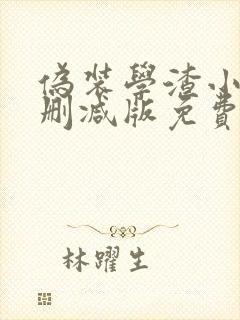 偽装學渣小
刪減版免費
林躍生